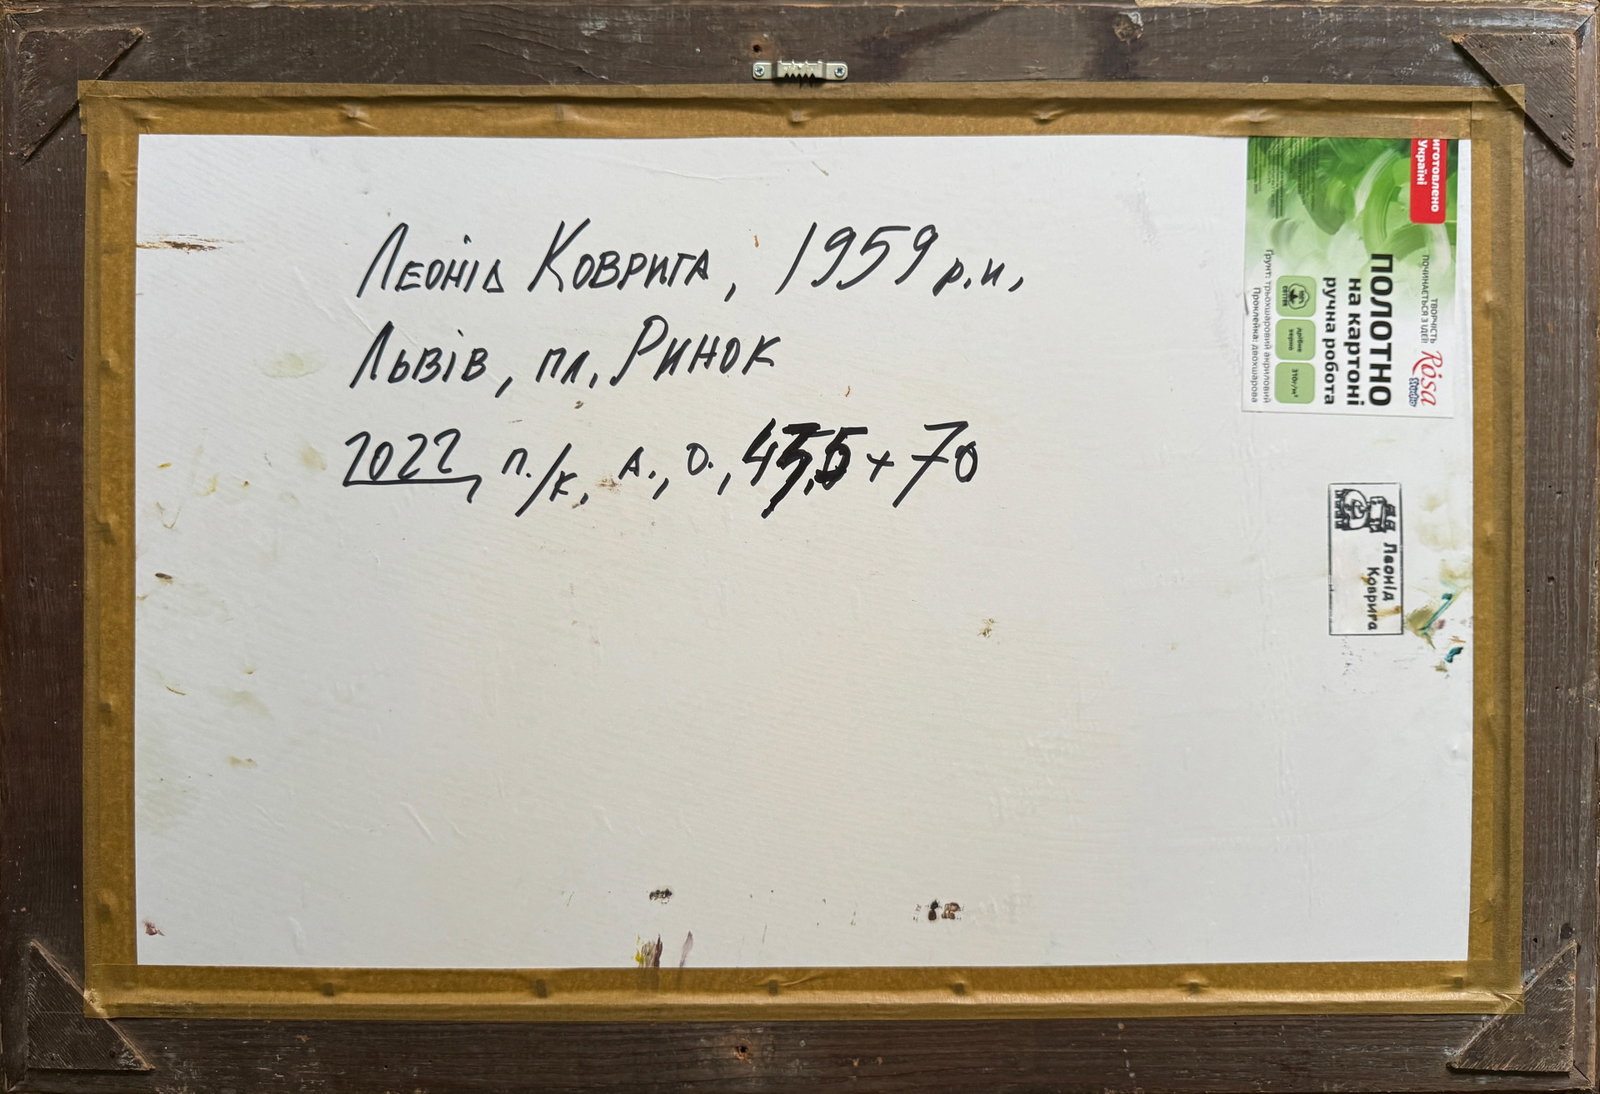 Леонід Коврига, 1959 р.н.
Львів, пл. Ринок
2022, п./к., А., О., 45,5 x 70
иготовлено
Україні
ТВОРЧІСТЬ
ПОЧИНАЄТЬСЯ З ІДЕЇ!
Rosa
Studio
ПОЛОТНО
на картоні
ручна робота
дрібне
зерно
310г/м²
Ґрунт: трьохшаровий акриловий
Проклейка: двохшарова
Леонід
Коврига